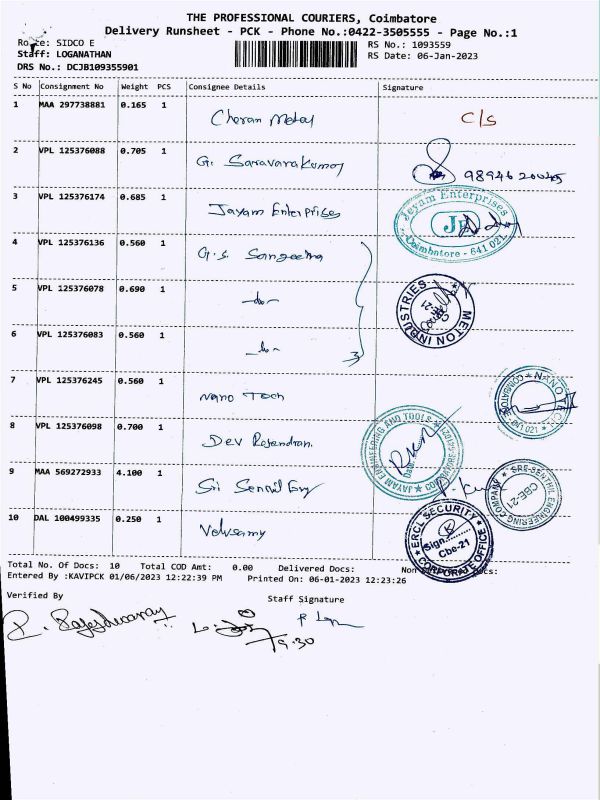 THE PROFESSIONAL COURIERS, Coimbatore
Delivery Runsheet - PCK - Phone No.:0422-3505555 - Page No.:1
Route: SIDCO E
RS No.: 1093559
Staff: LOGANATHAN
RS Date: 06-Jan-2023
DRS No.: DCJB109355901
S No Consignment No Weight PCS Consignee Details Signature
1 MAA 297738881 0.165 1 Cheran Metal C/S
2 VPL 125376088 0.705 1 G. Saravanakumar
3 VPL 125376174 0.685 1 Jayam Enterprises
Jayam Enterprises
JE
Coimbatore - 641 021
4 VPL 125376136 0.560 1 G.S. Sangeetha
5 VPL 125376078 0.690 1 -do-
METON INDUSTRIES
6 VPL 125376083 0.560 1 -do-
7 VPL 125376245 0.560 1 Nano Tech
8 VPL 125376098 0.700 1 Dev Rajendran
JAYAM ENGINEERING AND TOOLS
9 MAA 569272933 4.100 1 Sri Senthil Eng
SRE SENTHIL ENGINEERING COMPANY
CBE-21
10 DAL 100499335 0.250 1 Velusamy
ERCL SECURITY
Sign.
Cbe-21
CORPORATE OFFICE
Total No. Of Docs: 10 Total COD Amt: 0.00 Delivered Docs: Non
Entered By :KAVIPCK 01/06/2023 12:22:39 PM Printed On: 06-01-2023 12:23:26
Verified By
Staff Signature
R. Rajeshwaray
9.30